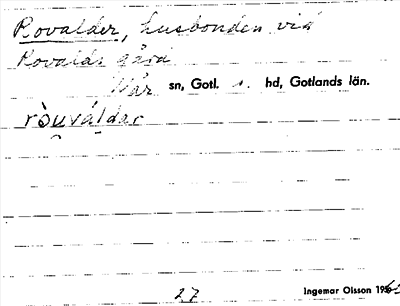 Rovalder, husbonden vid
Rovalds gård
När sn, Gotl. s. hd, Gotlands län.
ròu̯váldar
27
Ingemar Olsson 196